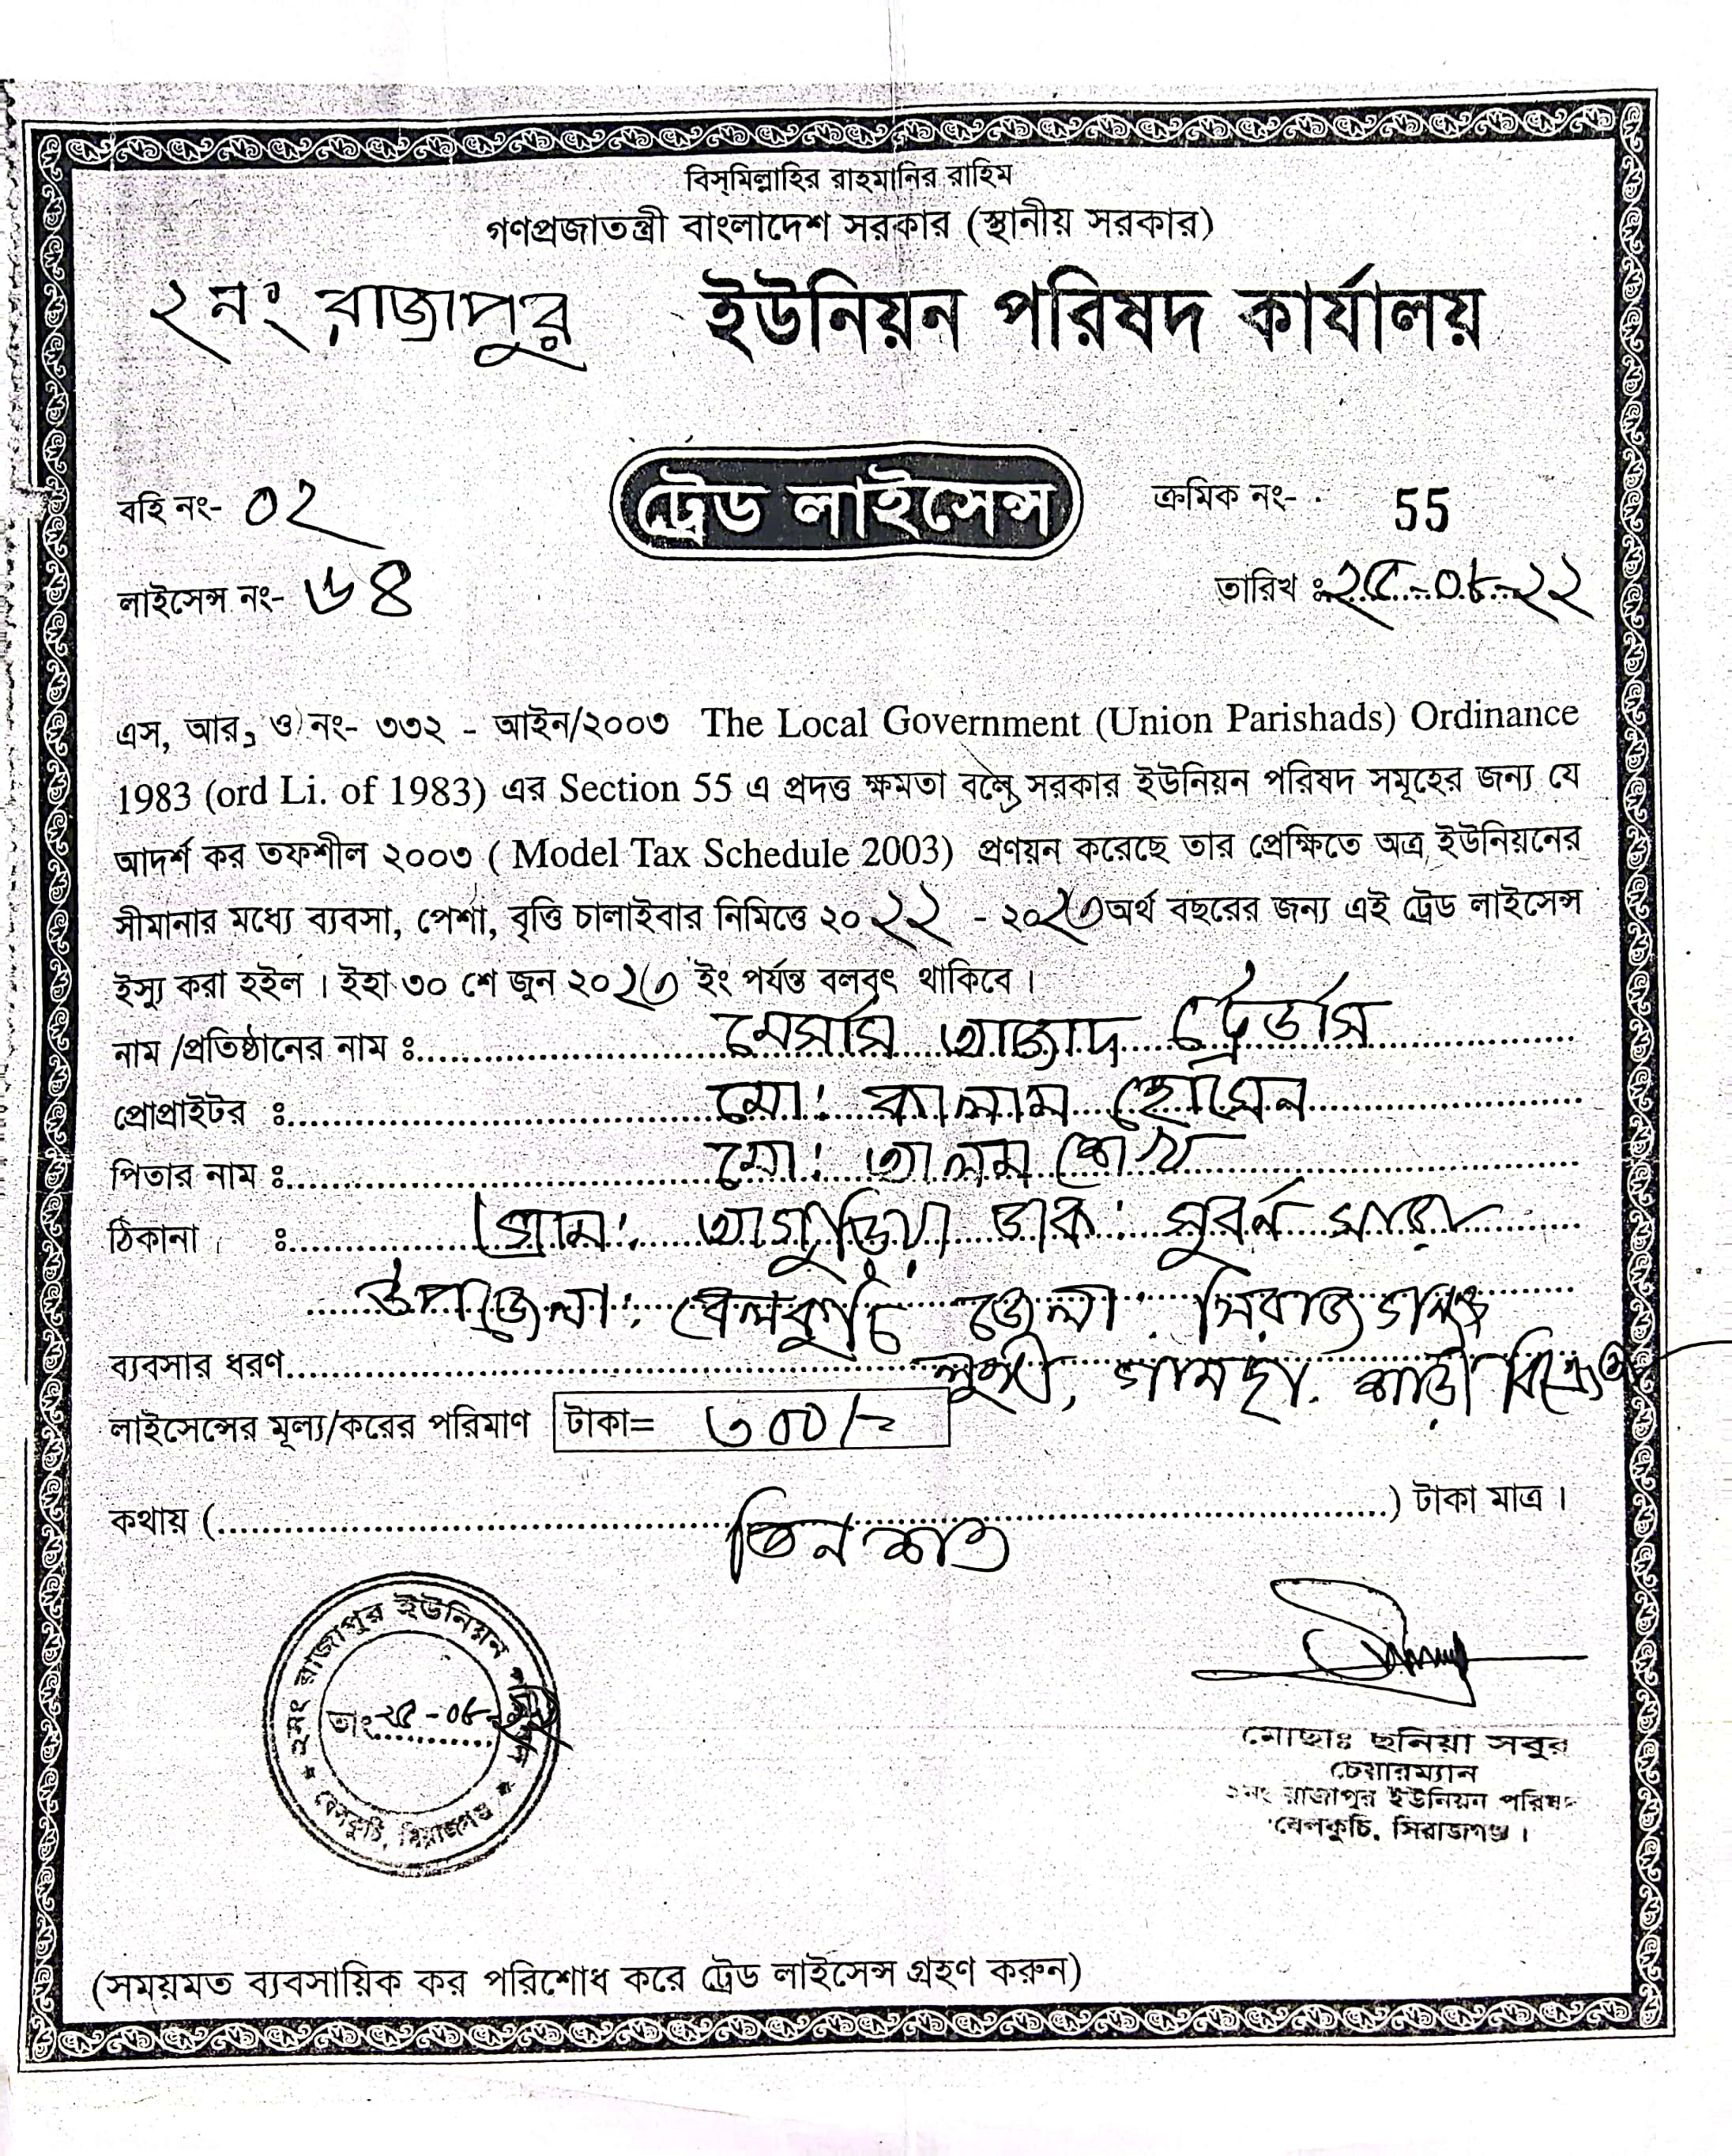 বিস্‌মিল্লাহির রাহমানির রাহিম
গণপ্রজাতন্ত্রী বাংলাদেশ সরকার (স্থানীয় সরকার)
২নং রাজাপুর ইউনিয়ন পরিষদ কার্যালয়
ট্রেড লাইসেন্স
বহি নং- ০২
ক্রমিক নং- 55
লাইসেন্স নং- ৬৪
তারিখ ঃ ২৫-০৮-২২
এস, আর, ও নং- ৩৩২ - আইন/২০০৩ The Local Government (Union Parishads) Ordinance
1983 (ord Li. of 1983) এর Section 55 এ প্রদত্ত ক্ষমতা বলে সরকার ইউনিয়ন পরিষদ সমূহের জন্য যে
আদর্শ কর তফশীল ২০০৩ ( Model Tax Schedule 2003) প্রণয়ন করেছে তার প্রেক্ষিতে অত্র ইউনিয়নের
সীমানার মধ্যে ব্যবসা, পেশা, বৃত্তি চালাইবার নিমিত্তে ২০২২ - ২০২৩ অর্থ বছরের জন্য এই ট্রেড লাইসেন্স
ইস্যু করা হইল । ইহা ৩০ শে জুন ২০২৩ ইং পর্যন্ত বলবৎ থাকিবে ।
নাম /প্রতিষ্ঠানের নাম ঃ মেসার্স আজাদ ট্রেডার্স
প্রোপ্রাইটর ঃ মো: কালাম হোসেন
পিতার নাম ঃ মো: আলম শেখ
ঠিকানা ঃ গ্রাম: আগুড়িয়া ডাক: সুবর্ন সাড়া
উপজেলা: বেলকুচি জেলা: সিরাজগঞ্জ
ব্যবসার ধরণ লুঙ্গী, গামছা, শাড়ী
লাইসেন্সের মূল্য/করের পরিমাণ টাকা= ৩০০/=
কথায় ( তিন শত ) টাকা মাত্র ।
২নং রাজাপুর ইউনিয়ন পরিষদ
তাং ২৫-০৮-২২
বেলকুচি, সিরাজগঞ্জ
মোছাঃ ছনিয়া সবুর
চেয়ারম্যান
২নং রাজাপুর ইউনিয়ন পরিষদ
বেলকুচি, সিরাজগঞ্জ ।
(সময়মত ব্যবসায়িক কর পরিশোধ করে ট্রেড লাইসেন্স গ্রহণ করুন)